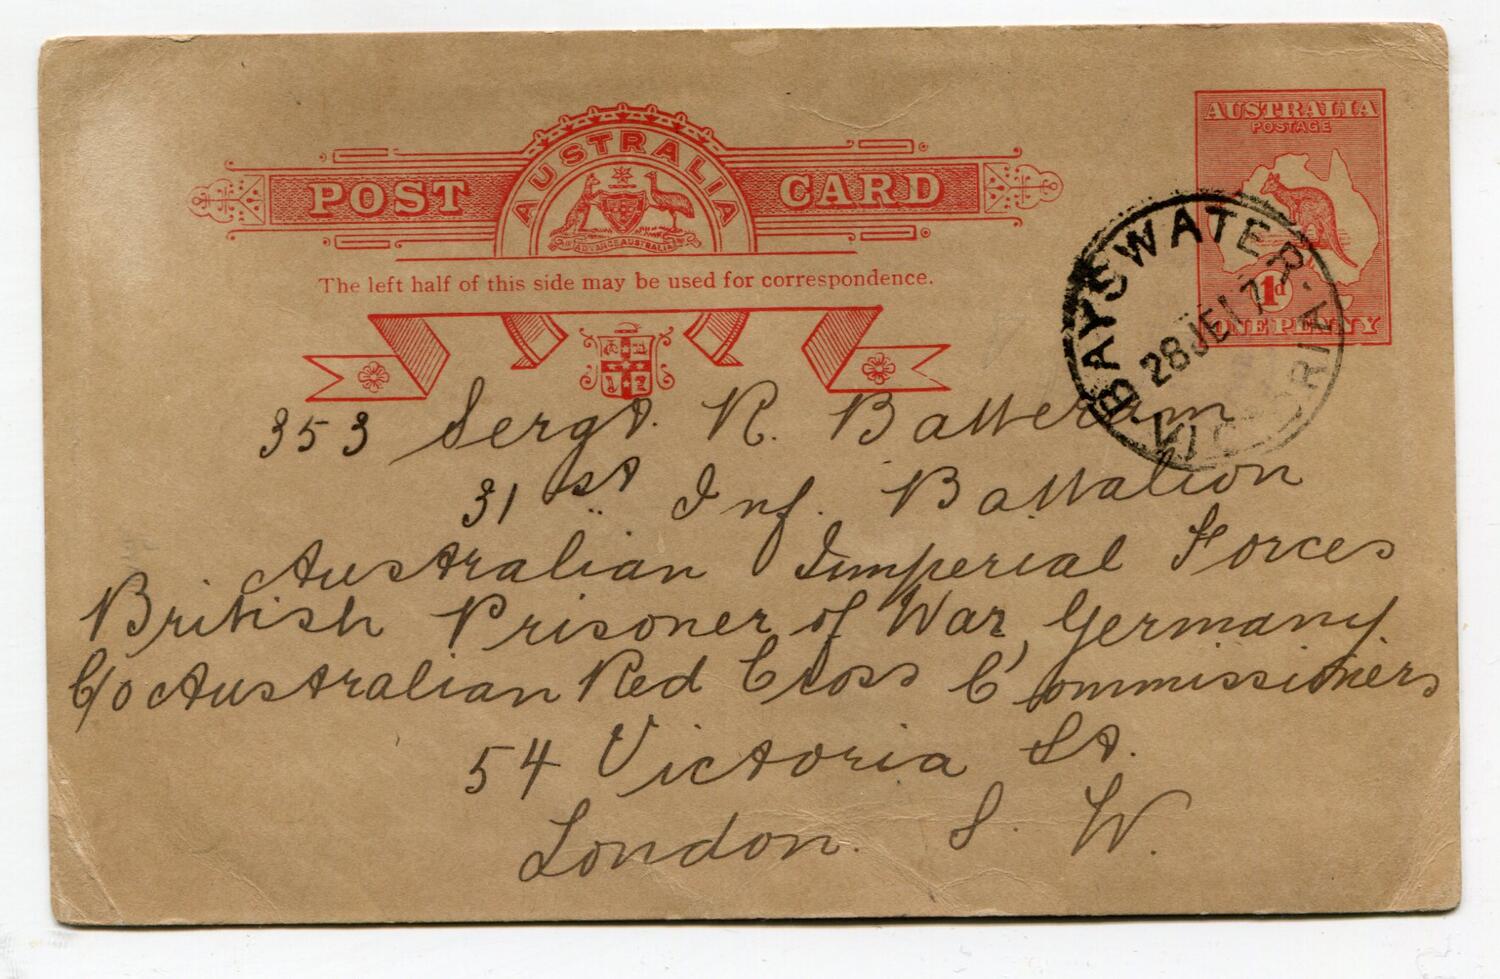 AUSTRALIA
POST CARD
ADVANCE AUSTRALIA
The left half of this side may be used for correspondence.
AUSTRALIA
POSTAGE
1d
ONE PENNY
BAYSWATER
28 JE 17
VICTORIA
353 Sergt. R. Batteram
31st Inf. Battalion
Australian Imperial Forces
British Prisoner of War, Germany.
C/o Australian Red Cross Commissioners
54 Victoria St.
London. S. W.